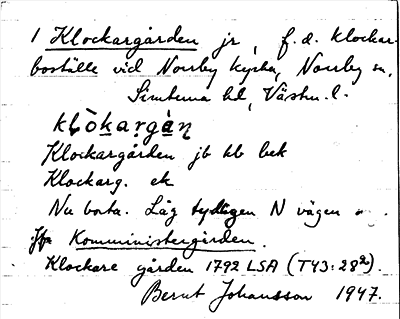 1 Klockargården jr, f.d. klockar-
boställe vid Norrby kyrka, Norrby sn,
Simtuna hd, Västm. l.
klò̀kargàɳ
Klockargården jb hb bek
Klockarg. ek
Nu borta. Låg tydligen N vägen
Jfr Komministergården.
Klockare gården 1792 LSA (T43:28²).
Bernt Johansson 1947.